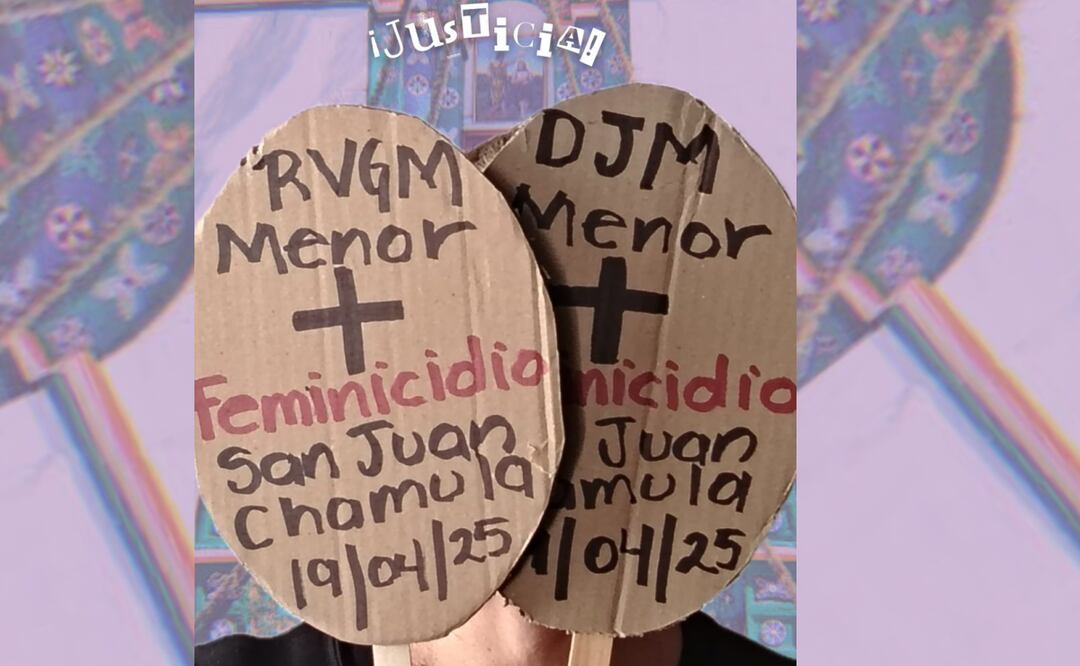 ¡JUSTICIA!
"RVGM
Menor
+
Feminicidio
San Juan
Chamula
19/04/25
DJM
Menor
+
nicidio
Juan
amula
/04/25